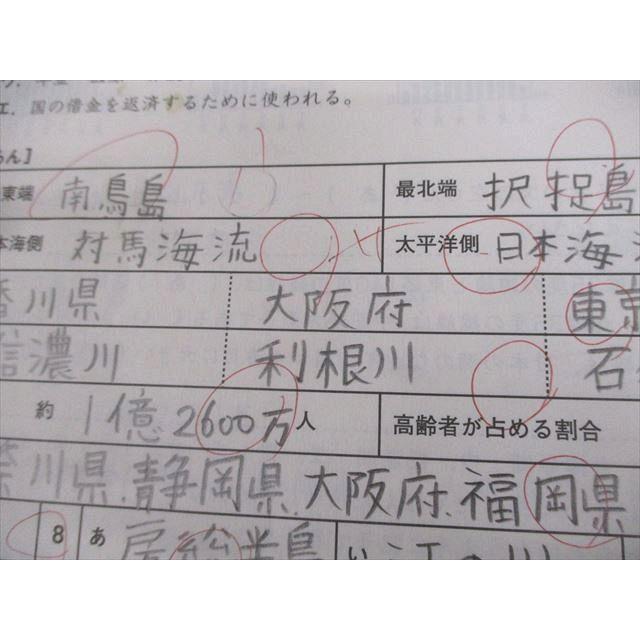 エ．国の借金を返済するために使われる。
東端 南鳥島 最北端 択捉島
本海側 対馬海流 太平洋側 日本海
香川県 大阪府 東京
信濃川 利根川 石
約 1億2600万人 高齢者が占める割合
川県.静岡県.大阪府.福岡県
8 あ 房総半島 い 江の川